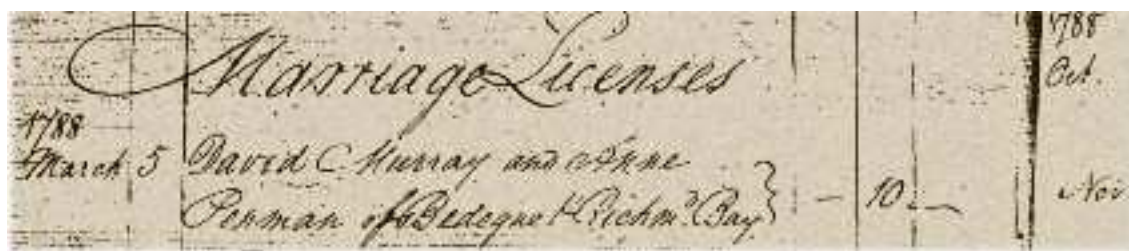 Marriage Licenses
1788
March 5 David C Murray and Anne
Penman of Bedeque & Richmd. Bay } - 10 -
1788
Oct.
Nov